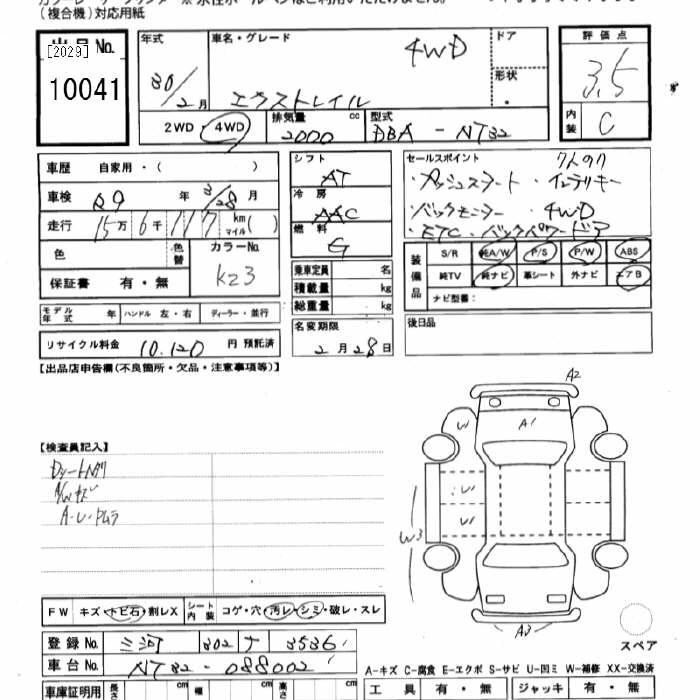 (複合機)対応用紙
出品No. [2029] 10041
年式 30/2月
車名・グレード 4WD エクストレイル
ドア
形状
評価点 3.5
内装 C
2WD・4WD
排気量 2000 cc
型式 DBA - NT32
車歴 自家用・( )
車検 R9 年 3/28 月
走行 15万6千117 km マイル( )
色 色替 カラーNo. K23
保証書 有・無
シフト AT
冷房 AAC
燃料 G
乗車定員 名
積載量 kg
総重量 kg
セールスポイント 7人のり
・プッシュスタート ・インテリキー
・バックモニター ・4WD
・ETC ・バックパワードア
装備品 S/R 純A/W P/S P/W ABS
純TV 純ナビ 革シート 外ナビ エアB
ナビ型番:
モデル年式 年 ハンドル 左・右 ディーラー・並行
名変期限 2月28日
後日品
リサイクル料金 10,120 円 預託済
【出品店申告欄(不良箇所・欠品・注意事項等)】
A2
W A1
W
W
W3
A3
【検査員記入】
A/Wキズ
FW キズ・トビ石・割レX シート内装 コゲ・穴・汚レ・シミ・破レ・スレ
登録No. 三河 302 ナ 3536
車台No. NT32-088002
スペア
A-キズ C-腐食 E-エクボ S-サビ U-凹ミ W-補修 XX-交換済
車庫証明用 長さ cm 幅 cm 高さ cm
工具 有・無 ジャッキ 有・無